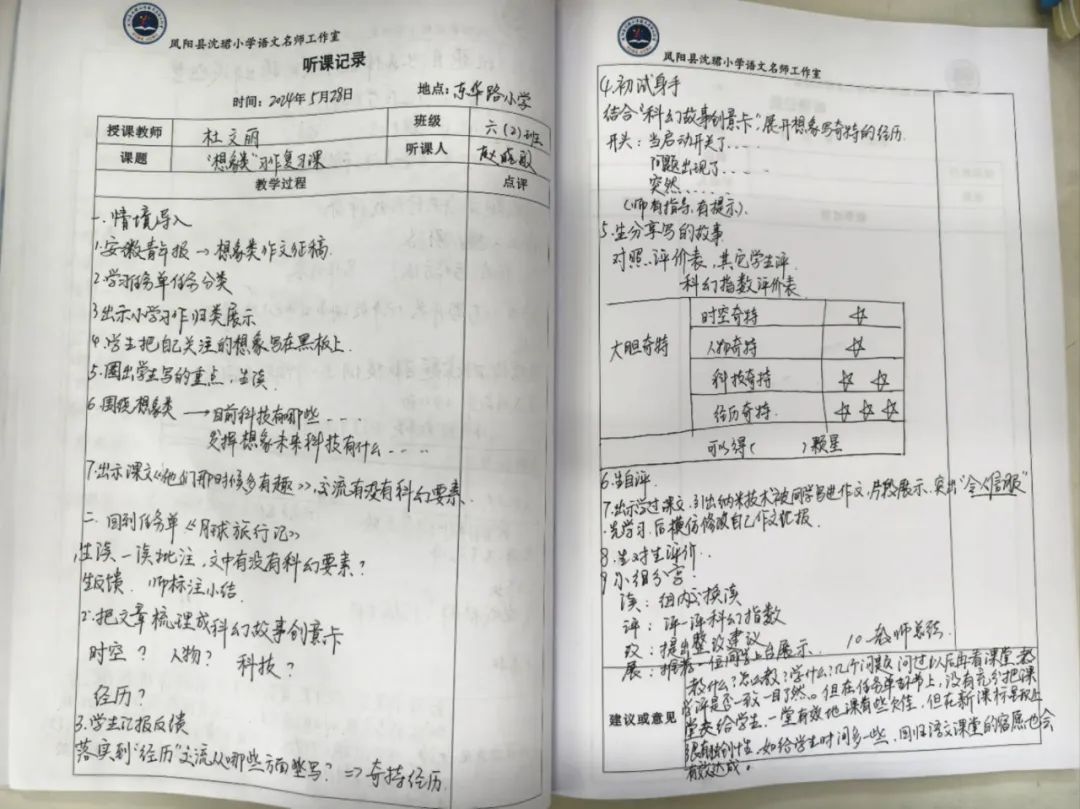 凤阳县沈珺小学语文名师工作室
听课记录
时间：2024年5月28日 地点：东华路小学
授课教师 杜文丽 班级 六(2)班
课题 “想象类”习作复习课 听课人 赵晓敏
教学过程 点评
一、情境导入
1.安徽青年报→想象类作文征稿
2.学习任务单任务分类
3出示小学习作归类展示
4.学生把自己关注的想象写在黑板上
5.圈出学生写的重点，生读
6.围绕想象类→目前科技有哪些....
发挥想象未来科技有什么....
7.出示课文《他们那时候多有趣》，交流有没有科幻要素
二、回到任务单《月球旅行记》
1.生读一读批注，文中有没有科幻要素？
生反馈 师标注小结
2.把文章梳理成科幻故事创意卡
时空？ 人物？ 科技？
经历？
3.学生汇报反馈
落实到“经历”交流从哪些方面些写？⇒奇特经历
凤阳县沈珺小学语文名师工作室
4.初试身手
结合“科幻故事创意卡”展开想象写奇特的经历
开头：当启动开关了....
问题出现了....
突然....
(师有指导，有提示)
5.生分享写的故事
对照评价表，其它学生评
科幻指数评价表
大胆奇特 时空奇特 ☆
人物奇特 ☆
科技奇特 ☆ ☆
经历奇特 ☆ ☆ ☆
可以得( )颗星
6.生自评
7.出示学过课文，引出纳米技术 同学写进作文，片段展示，突出“令人信服”
先学习，后模仿修改自己作文汇报
8.生对生评价
9小组分享
读：组内交换读
评：评一评科幻指数
改：提出整改建议 10.教师总结
展：推荐一位同学上台展示
建议或意见
教什么？怎么教？学什么？几个问题反问过以后再看课堂，教
学评是否一致一目了然。但在任务单环节上，没有充分把课
堂类给学生，一堂有效地课有些欠佳，但在新课标导板上
很有融创性，如给学生时间多一些，回归语文课堂的 也会
有效达成。